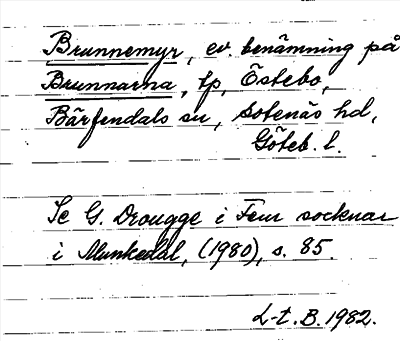 Brunnemyr, ev. benämning på
Brunnarna, tp, Östebo,
Bärfendals sn, Sotenäs hd,
Göteb. l.
Se G. Drougge i Fem socknar
i Munkedal, (1980), s. 85.
L-t. B. 1982.